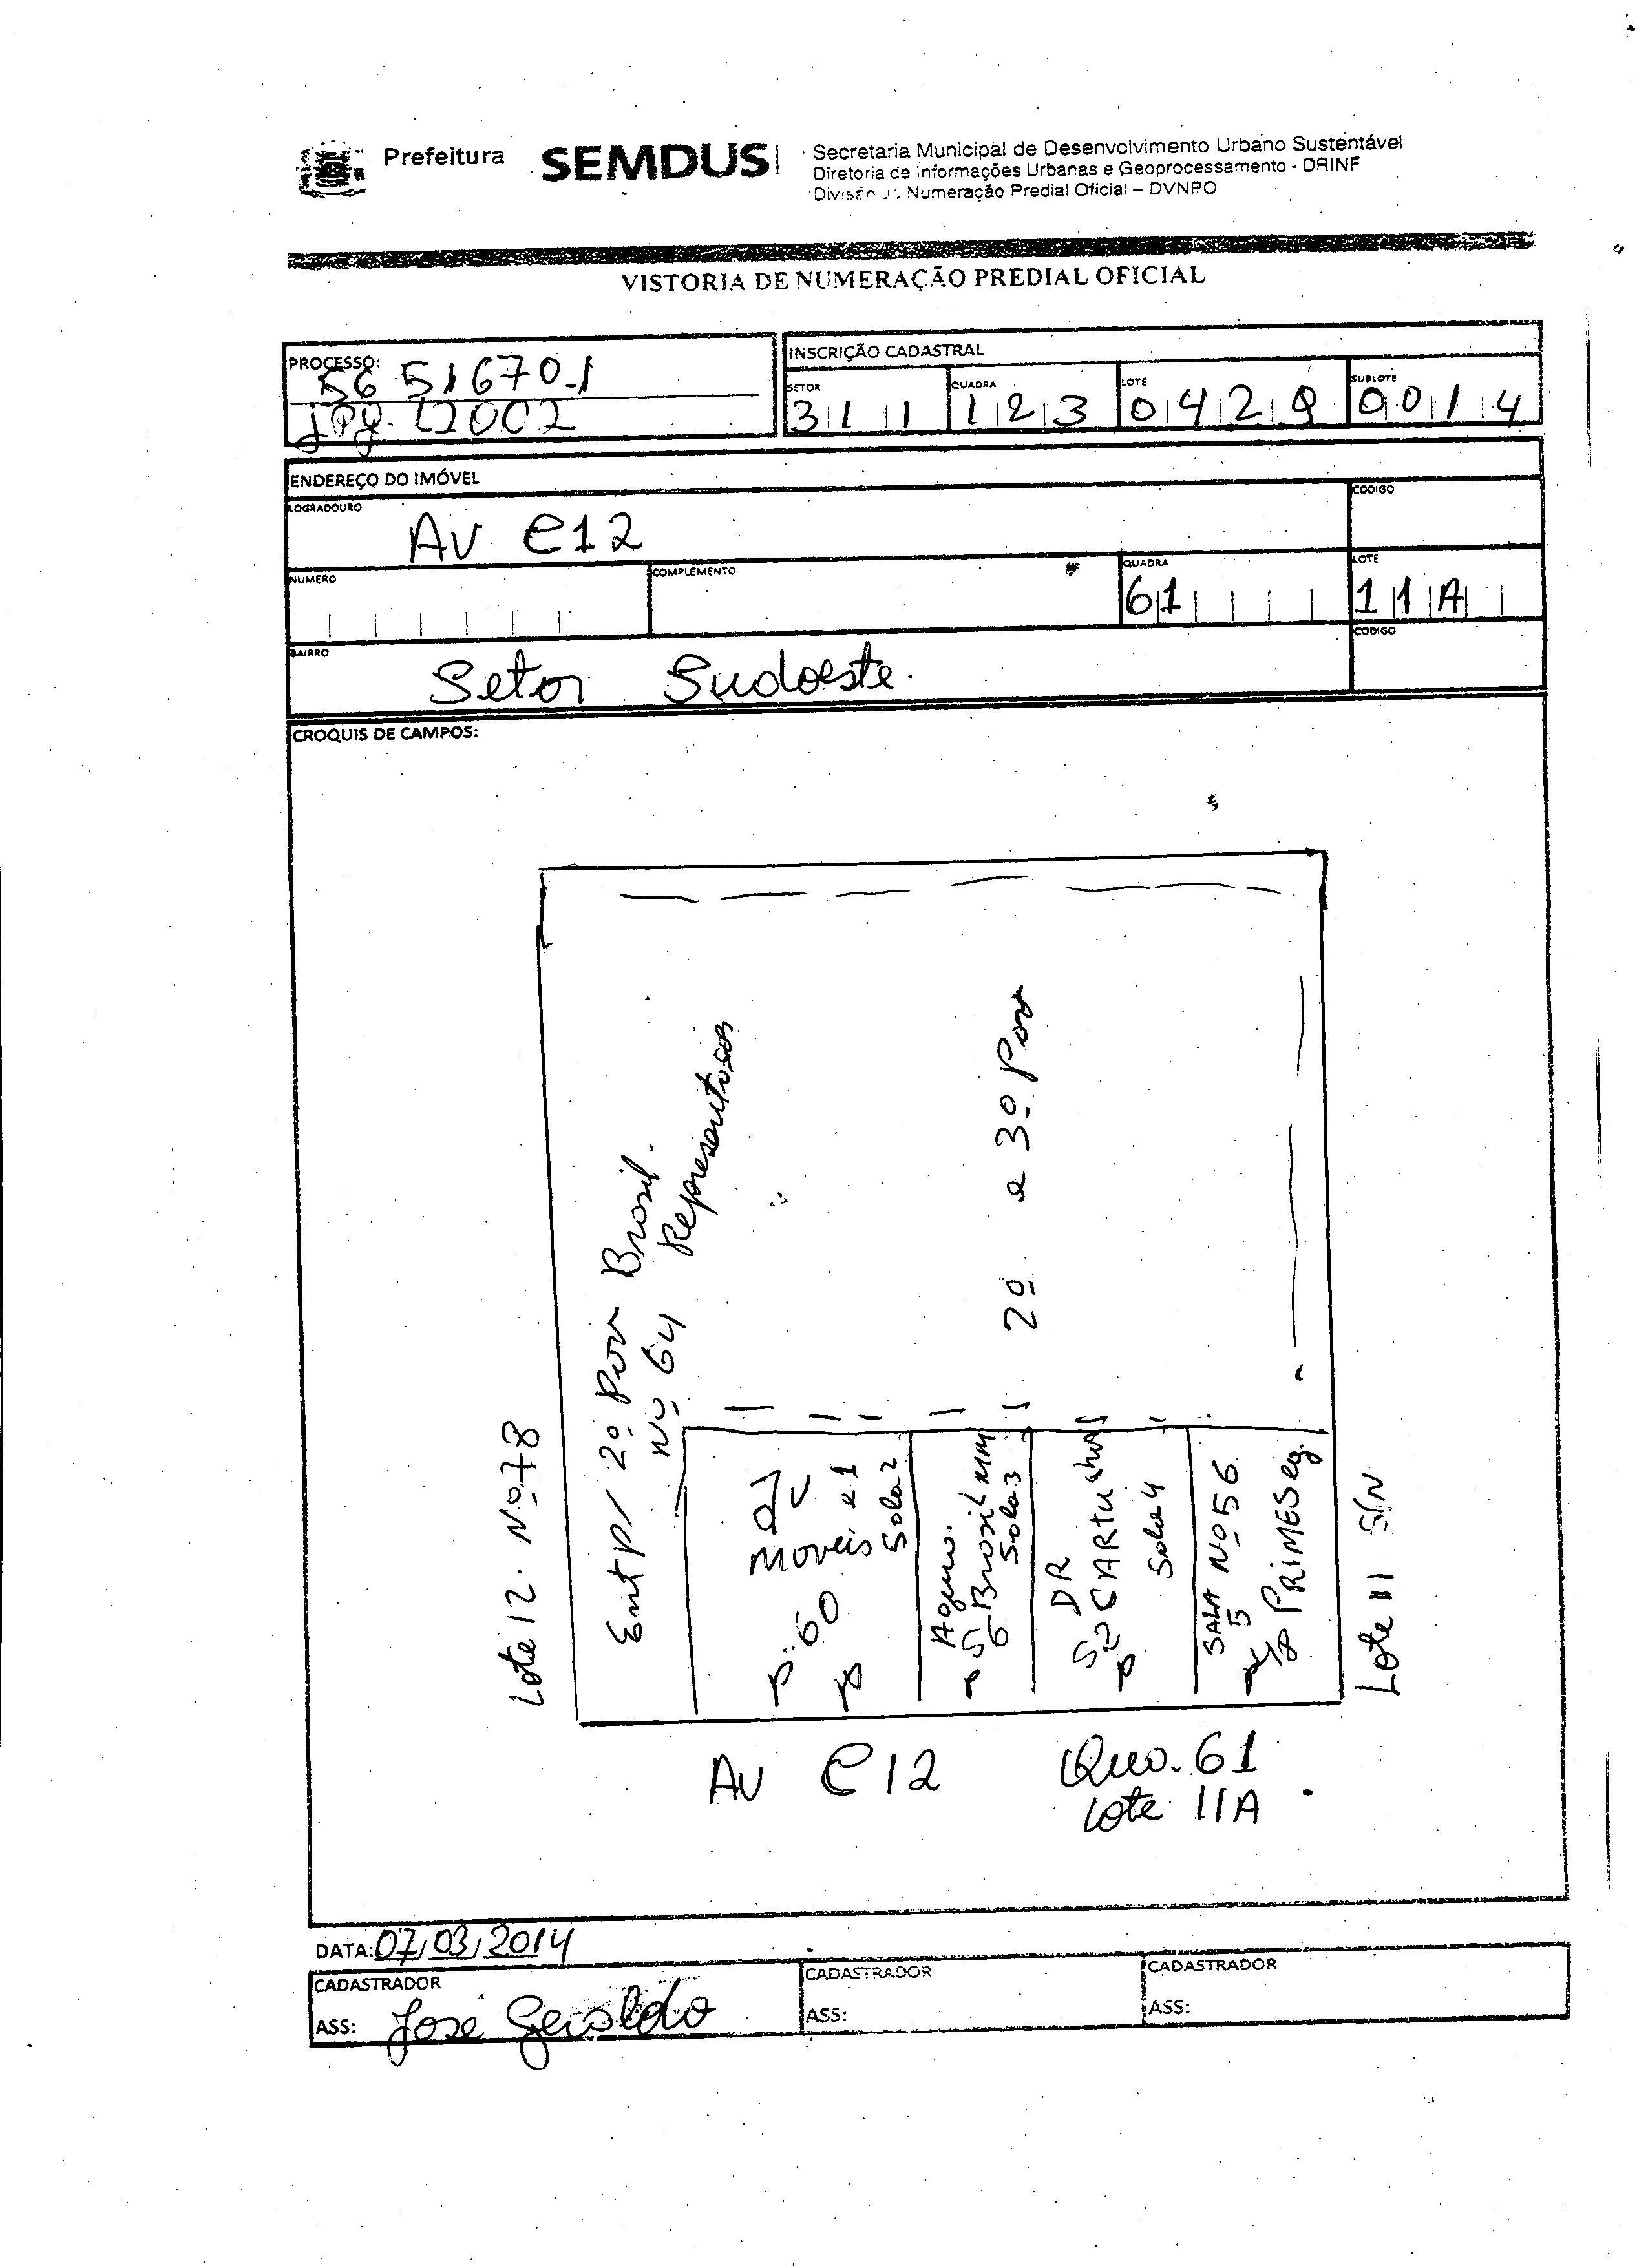 Prefeitura SEMDUS
Secretaria Municipal de Desenvolvimento Urbano Sustentável
Diretoria de Informações Urbanas e Geoprocessamento - DRINF
Divisão Numeração Predial Oficial – DVNPO
VISTORIA DE NUMERAÇÃO PREDIAL OFICIAL
PROCESSO:
56516701
INSCRIÇÃO CADASTRAL
SETOR QUADRA LOTE SUBLOTE
311 123 0429 0014
ENDEREÇO DO IMÓVEL
LOGRADOURO CODIGO
AV E12
NUMERO COMPLEMENTO QUADRA LOTE
61 11A
BAIRRO CODIGO
Setor Sudoeste.
CROQUIS DE CAMPOS:
Lote 12. Nº 78
Entp/ 2º Pav Brasil.
Nº 64 Representosos
Moveis e 1
Sala 2
60
2º e 3º Pav
Brasil MM
Sala 3
DR
CARTuchos
Sala 4
52
SALA Nº 56
5
PRIMESeg.
Lote 11 S/N
AV E12
Qua. 61
Lote 11A
DATA: 07/03/2014
CADASTRADOR CADASTRADOR CADASTRADOR
ASS: José Geraldo ASS: ASS: